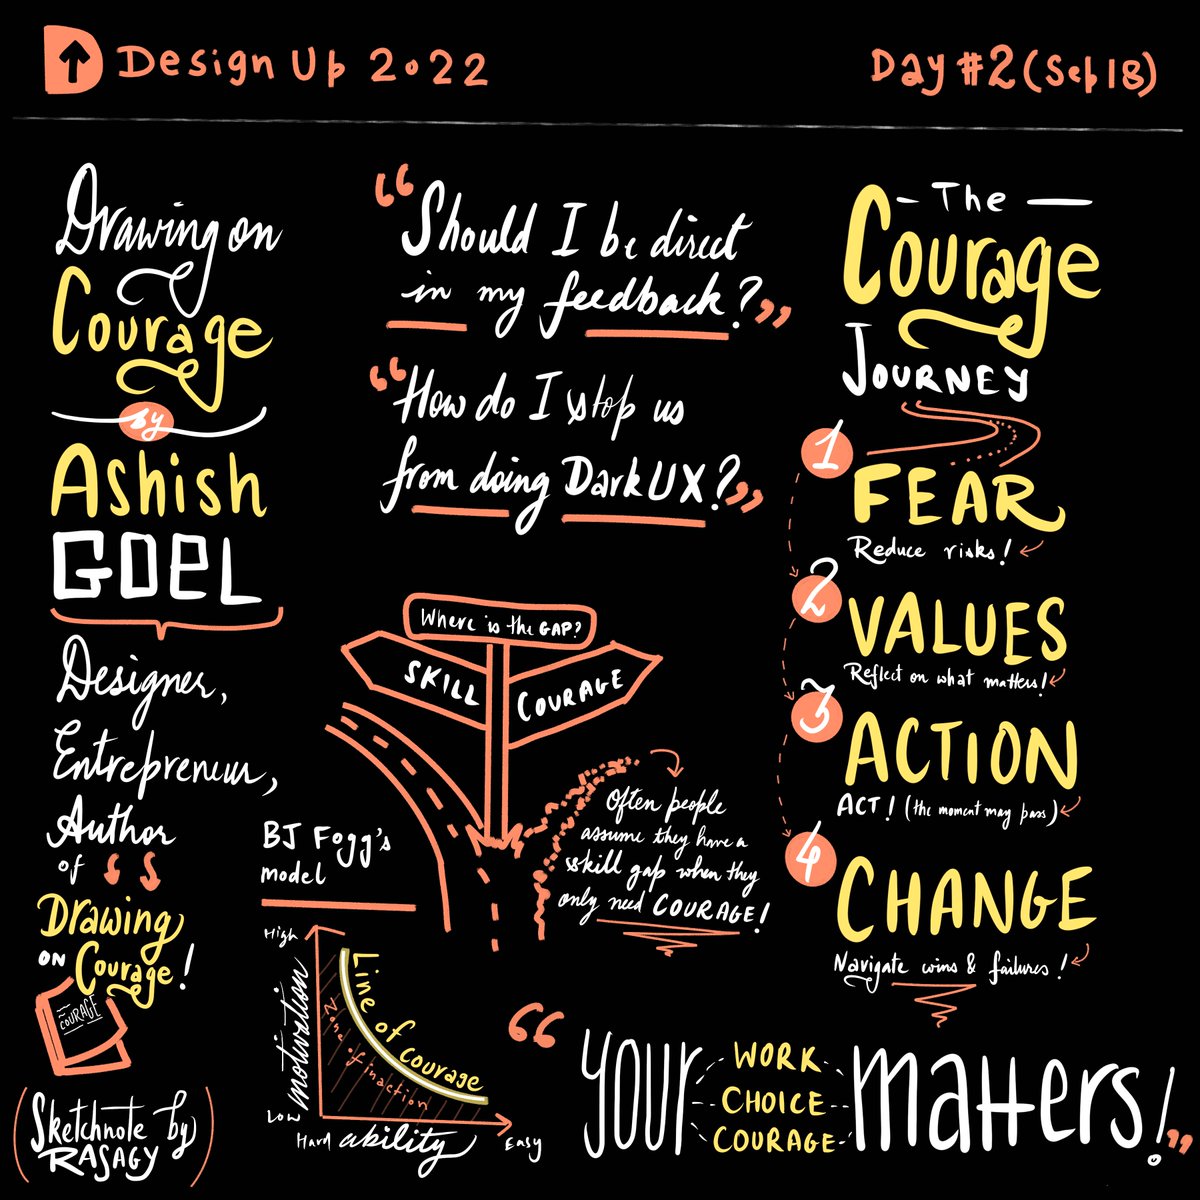 Design Up 2022
Day #2 (Sep 18)
Drawing on
Courage
by
Ashish
GOEL
Designer,
Entrepreneur,
Author
of
Drawing
on Courage!
COURAGE
(Sketchnote by
RASAGY)
“Should I be direct
in my feedback?”
“How do I stop us
from doing Dark UX?”
Where is the GAP?
SKILL
COURAGE
Often people
assume they have a
skill gap when they
only need COURAGE!
BJ Fogg's
model
High
motivation
Low
Line of courage
Zone of inaction
Hard ability Easy
The
Courage
JOURNEY
1
FEAR
Reduce risks!
2
VALUES
Reflect on what matters!
3
ACTION
ACT! (the moment may pass)
4
CHANGE
Navigate wins & failures!
“your
WORK
CHOICE
COURAGE
matters!”